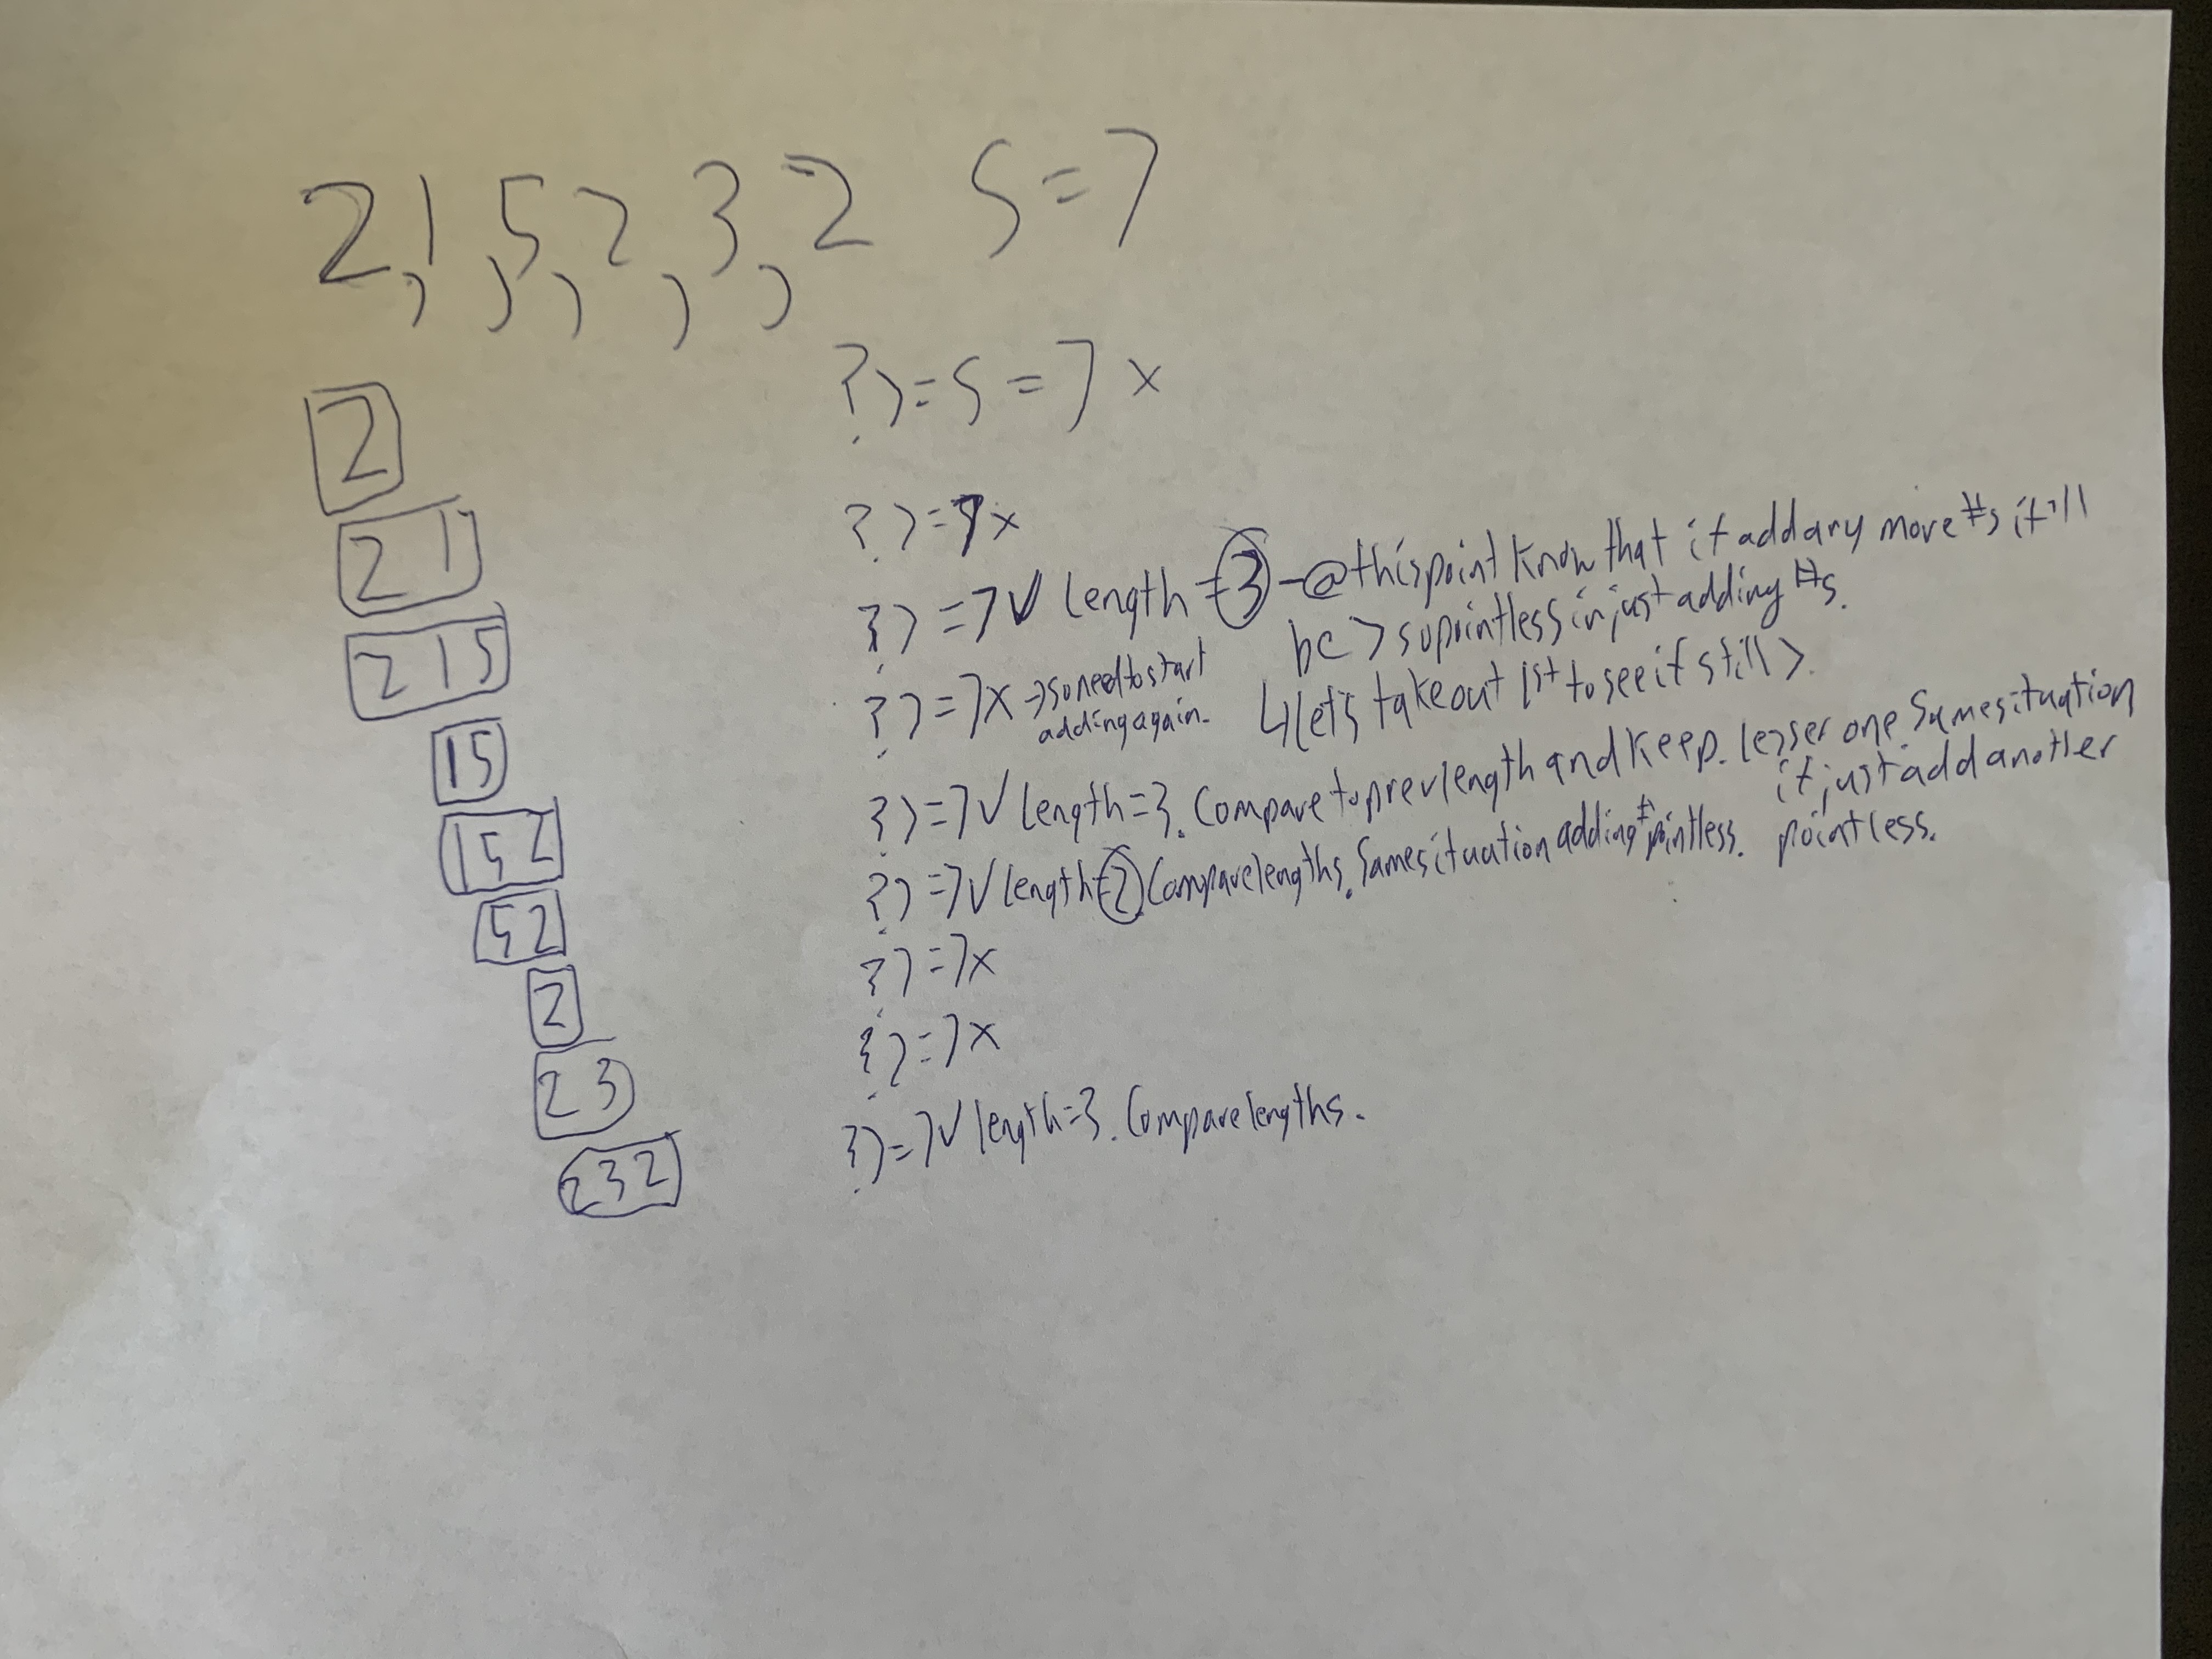 2, 1, 5, 2, 3, 2 S = 7
2 ? >= S = 7 x
2 1 ? >= 7 x
2 1 5 ? >= 7 ✓ length = 3 - @ this point know that if add any more #s it'll
be > so pointless in just adding #s.
↳ let's take out 1st to see if still >.
1 5 ? >= 7 x → so need to start
adding again.
1 5 2 ? >= 7 ✓ length = 3. Compare to prev length and keep lesser one. Same situation
if just add another
pointless.
5 2 ? >= 7 ✓ length = 2. Compare lengths. Same situation adding # pointless.
2 ? >= 7 x
2 3 ? >= 7 x
2 3 2 ? >= 7 ✓ length = 3. Compare lengths.